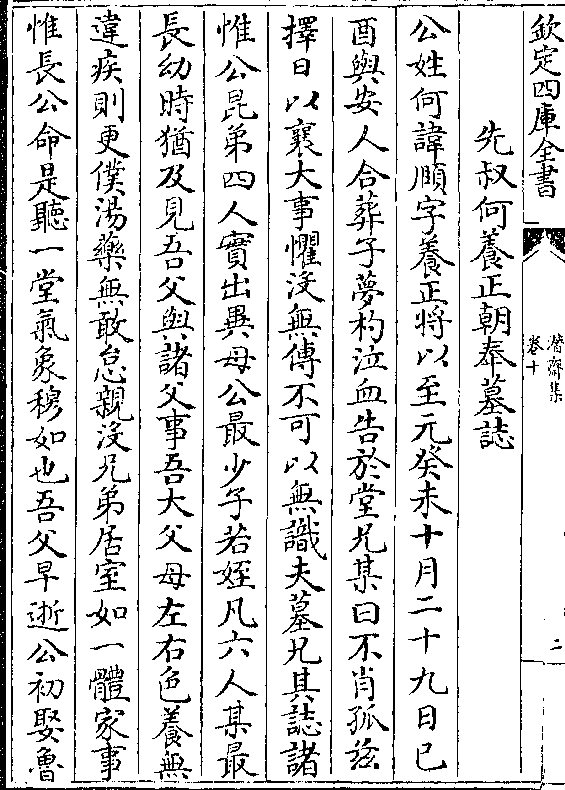 欽定四庫全書
潛齋集
卷十
二
先叔何養正朝奉墓誌
公姓何諱頤字養正將以至元癸未十月二十九日己
酉與安人合葬子夢杓泣血告於堂兄某曰不肖孤兹
擇日以襄大事懼沒無傳不可以無識夫墓兄其誌諸
惟公昆弟四人實出異母公最少子若姪凡六人某最
長幼時猶及見吾父與諸父事吾大父母左右色養無
違疾則更僕湯藥無敢怠親沒兄弟居室如一體家事
惟長公命是聽一堂氣象穆如也吾父早逝公初娶魯